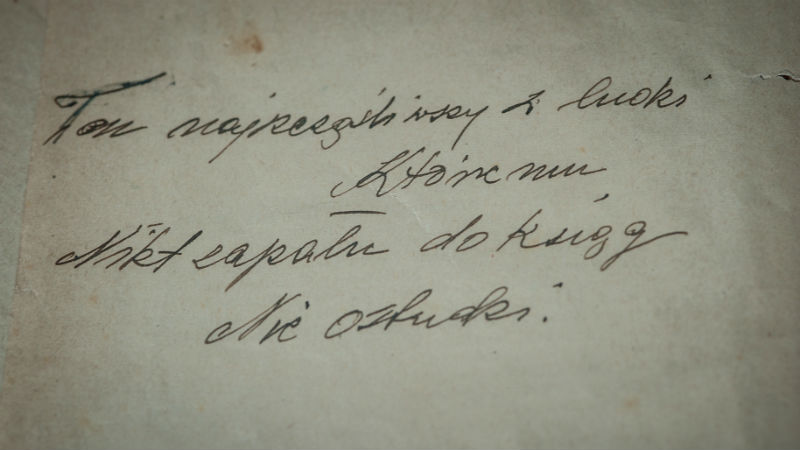 Ten najszczęśliwszy z ludzi
Któremu
Nikt zapału do ksiąg
Nie ostudzi.